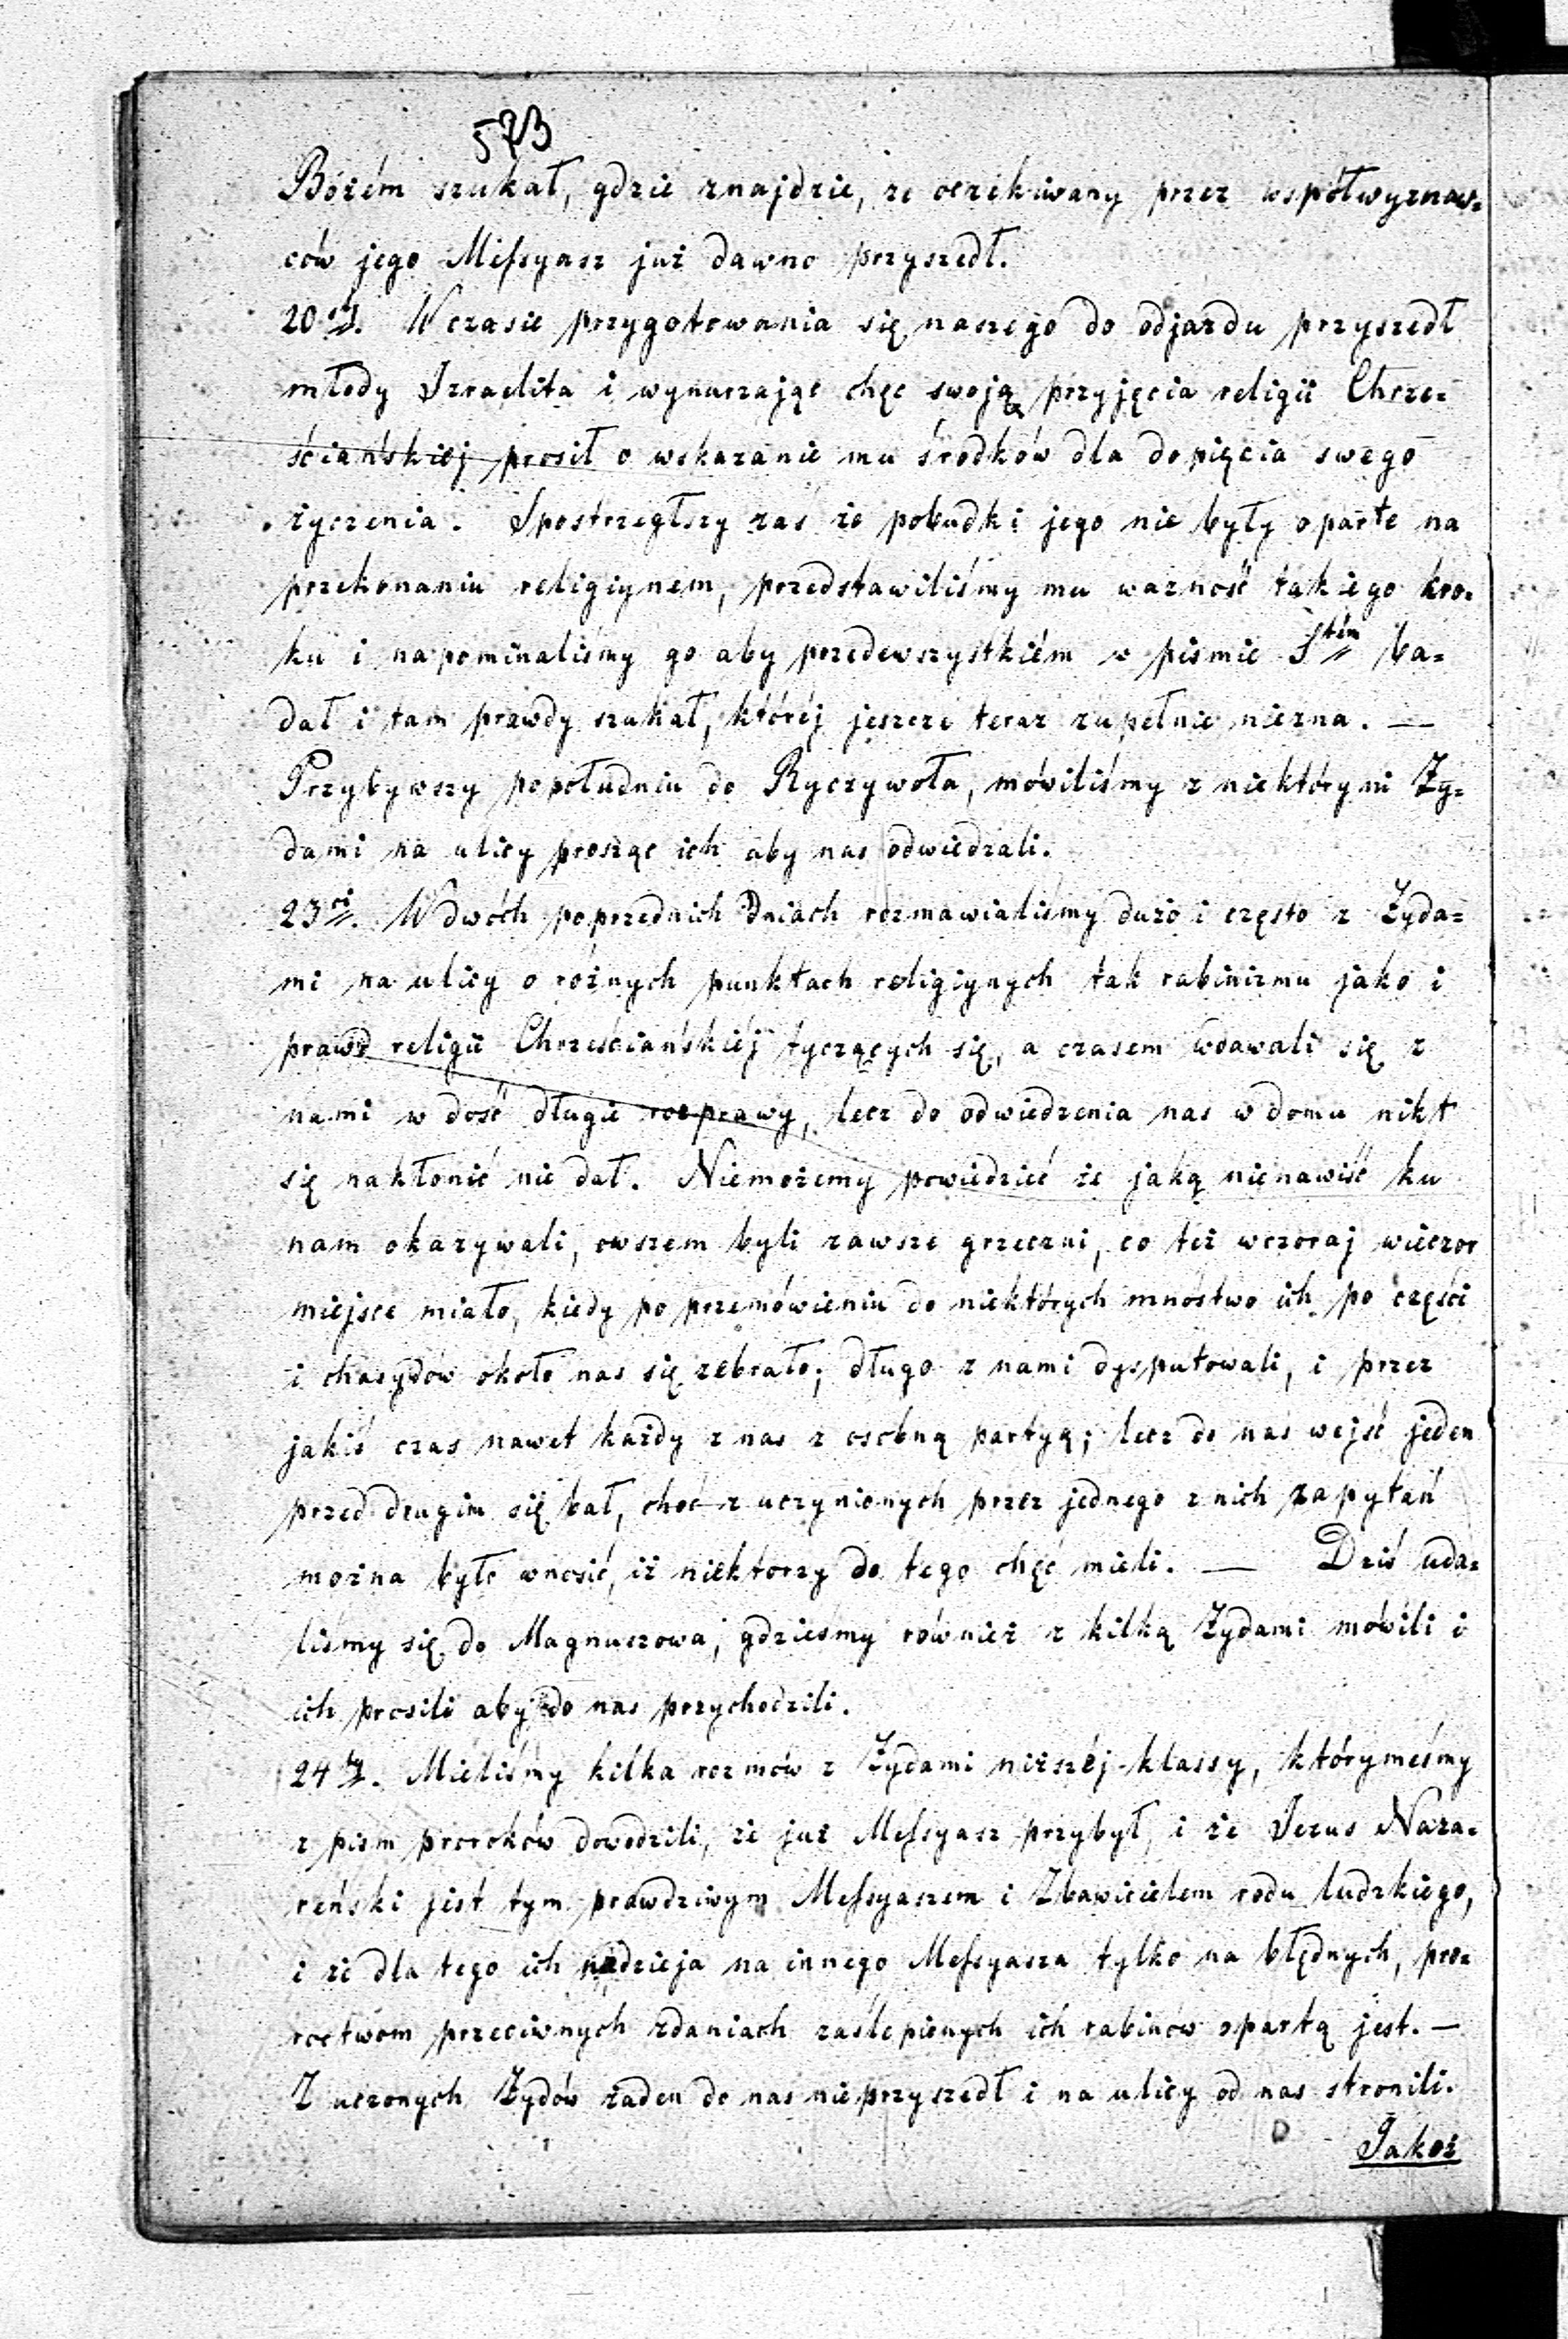 573
Bożém szukał, gdzie znajdzie, że oczekiwany przez współwyznaw=
ców jego Mefsyasz już dawno przyszedł.
20ty. W czasie przygotowania się naszego do odjazdu przyszedł
młody Izraelita i wynurzając chęc swoją przyjęcia religii Chrze=
ściańskiej prosił o wskazanie mu środków dla dopięcia swego
życzenia. Spostrzegłszy zaś że pobudki jego nie były oparte na
przekonaniu religiynem, przedstawiliśmy mu ważność takiego kro=
ku i napominaliśmy go aby przedewszystkiém w piśmie Stém ba=
dał i tam prawdy szukał, któréj jeszcze teraz zupełnie niezna. —
Przybywszy popołudniu do Ryczywoła, mówiliśmy z niektórymi Ży=
dami na ulicy prosząc ich aby nas odwiedzali.
23ci. W dwóch poprzednich dniach rozmawialiśmy dużo i często z Żyda=
mi na ulicy o różnych punktach religiynych tak rabinizmu jako i
prawd religii Chrześciańskiéj tyczących się, a czasem wdawali się z
nami w dość długie rozprawy, lecz do odwiedzenia nas w domu nikt
się nakłonić nie dał. Niemożemy powiedzieć że jaką nienawiść ku
nam okazywali, owszem byli zawsze grzeczni, co też wczoraj wieczor
miejsce miało, kiedy po przemówieniu do niektórych mnóstwo ich po części
i chasydów około nas się zebrało; długo z nami dysputowali, i przez
jakiś czas nawet każdy z nas z osobną partyą; lecz do nas wejść jeden
przed drugim się bał, choć z uczynionych przez jednego z nich zapytań
można było wnosić, iż niektorzy do tego chęć mieli. — Dziś uda=
liśmy się do Magnuszowa, gdzieśmy również z kilką Żydami mówili i
ich prosili aby do nas przychodzili.
24ty. Mieliśmy kilka rozmów z Żydami niższéj klassy, którymeśmy
z pism proroków dowodzili, że już Mefsyasz przybył, i że Jezus Naza=
reński jest tym prawdziwym Mefsyaszem i Zbawicielem rodu ludzkiego,
i że dla tego ich nadzieja na innego Mefsyasza tylko na błędnych, pro=
roctwom przeciwnych zdaniach zaślepionych ich rabinów opartą jest. —
Z uczonych Żydów żaden do nas nieprzyszedł i na ulicy od nas stronili.
Jakoż